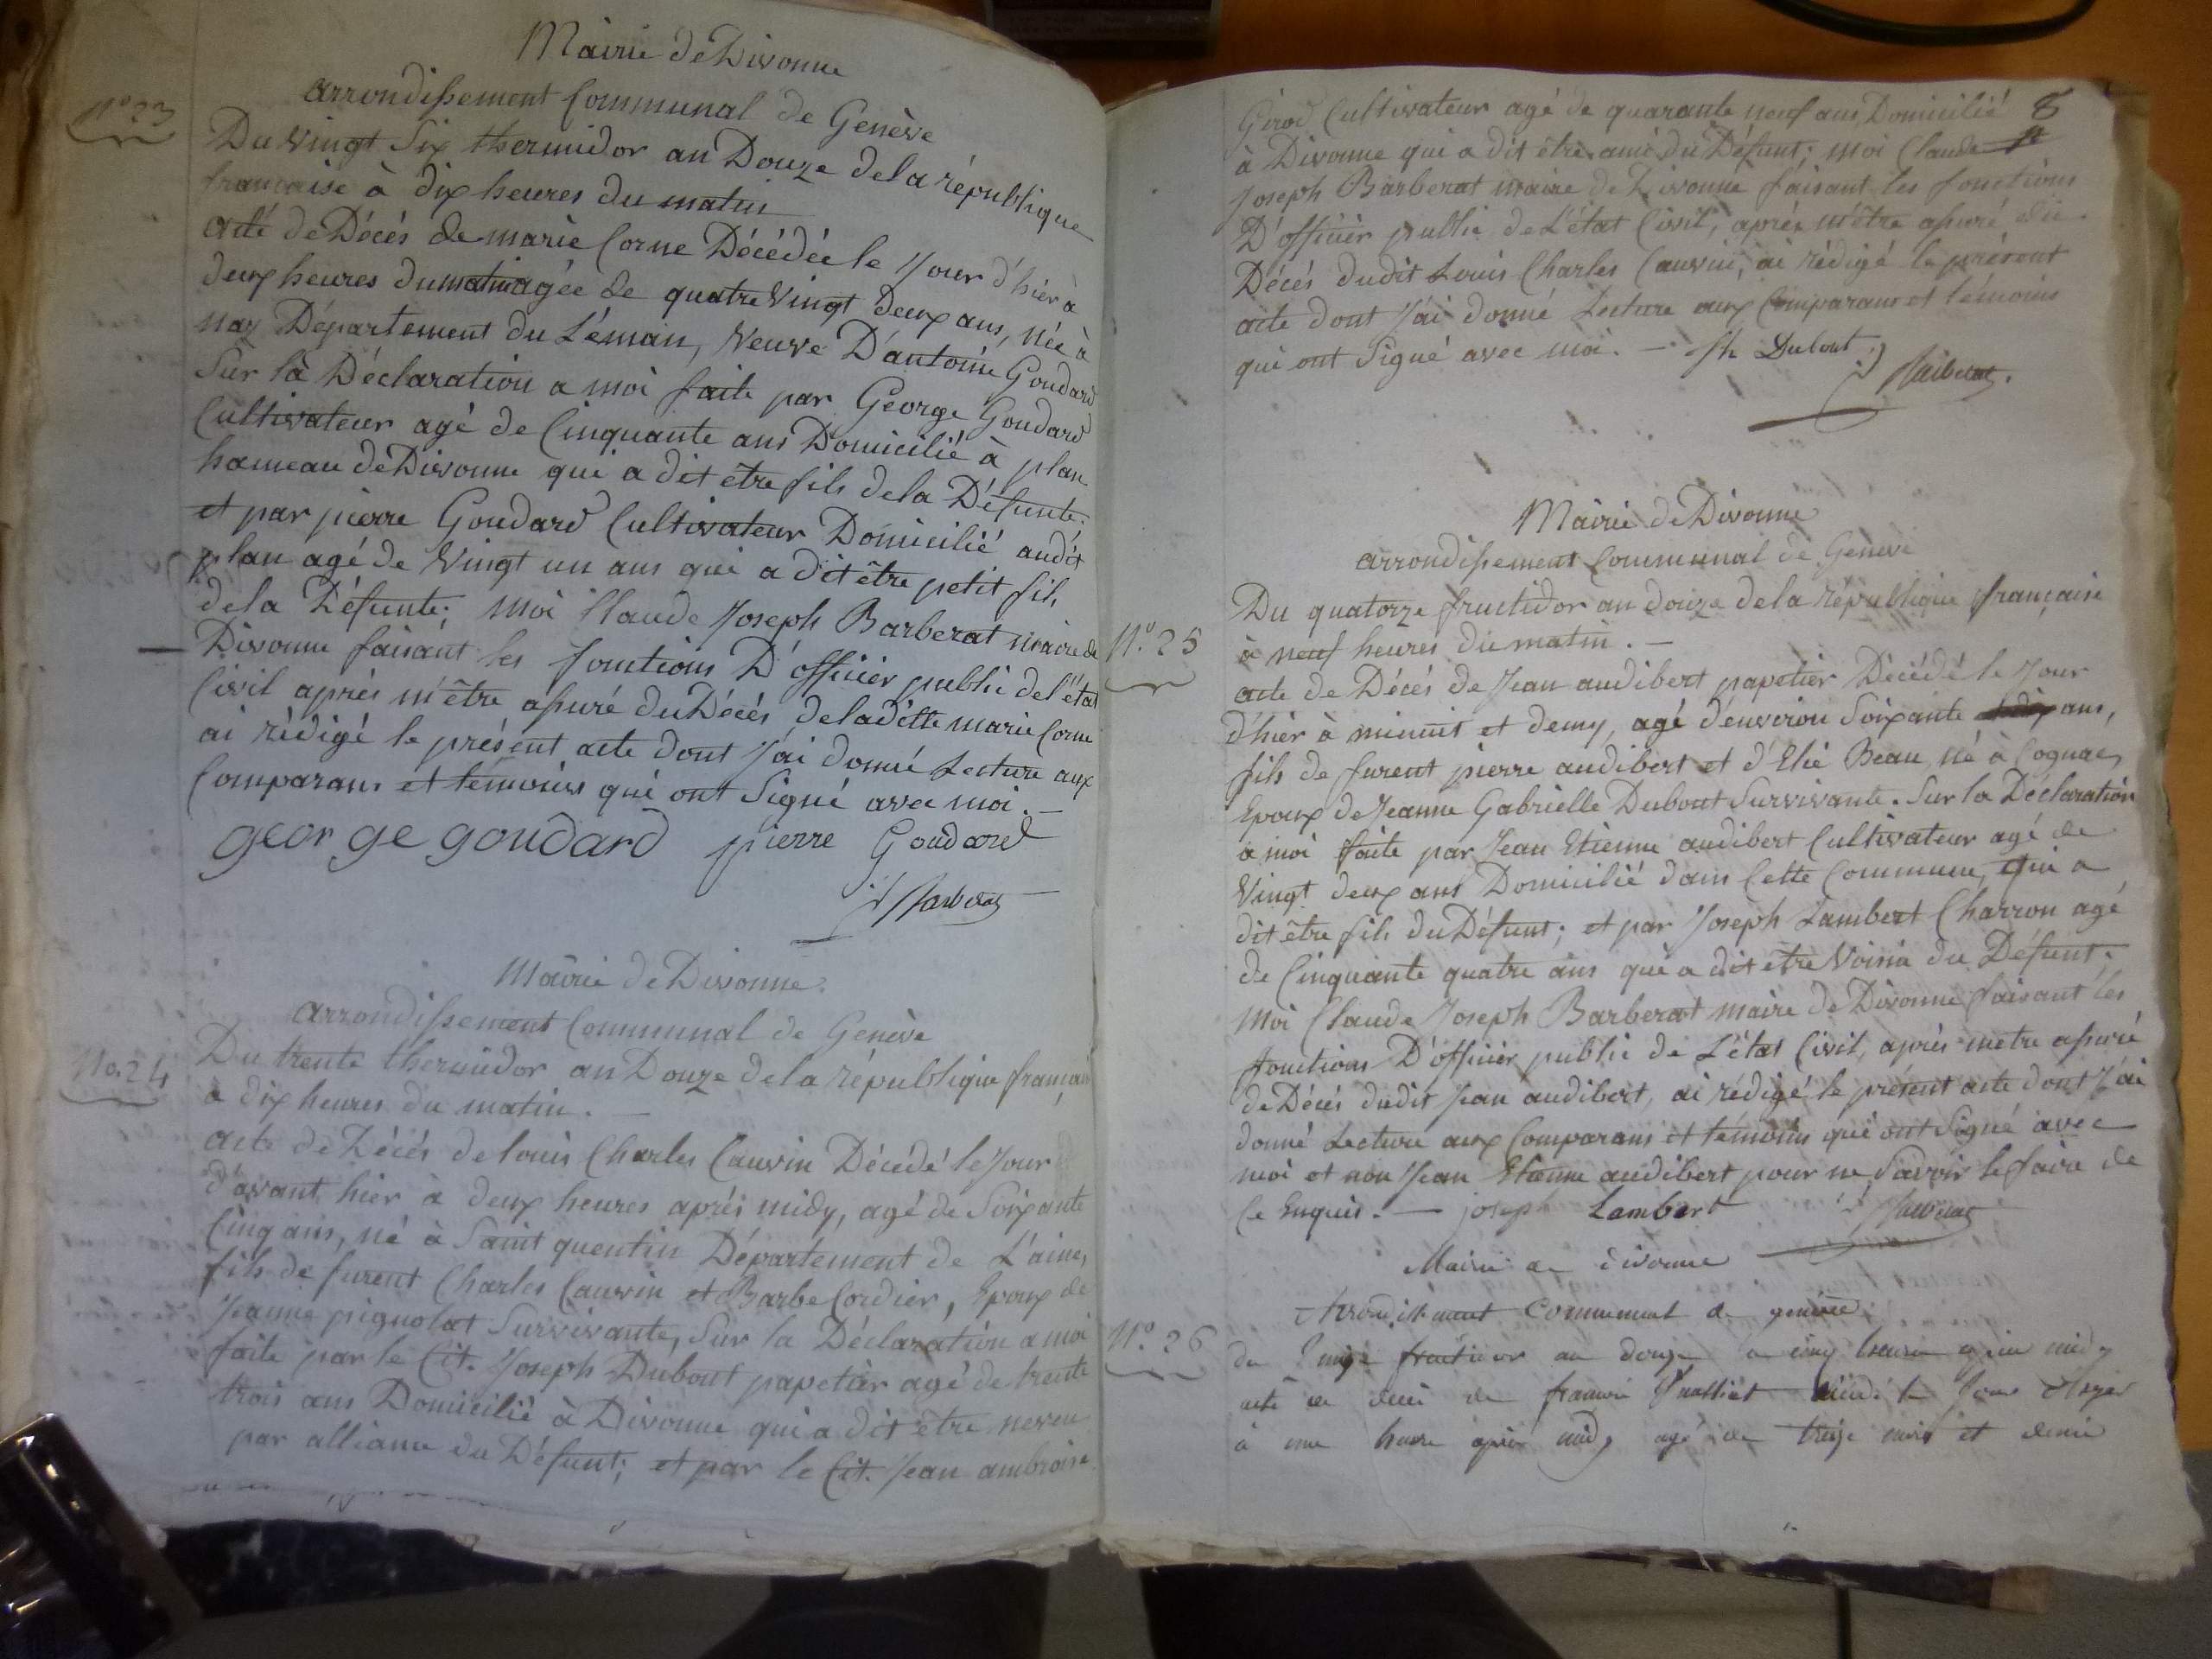 Mairie de Divonne
arrondissement Communal de Genève
N° 23
Du Vingt Six thermidor an Douze de la république
francaise à dix heures du matin
acte de Décés de marie Corne Décédée le Jour d'hier à
deux heures du matin agée de quatre Vingt deux ans, née à
naz Département du Léman, Veuve D'antoine Goudard
Sur la Déclaration a moi faite par George Goudard
Cultivateur agé de Cinquante ans Domicilié à plan
hameau de Divonne qui a dit être fils de la Défunte.
et par pierre Goudard Cultivateur Domicilié audit
plan agé de Vingt un ans qui a dit être petit fils
de la Défunte; Moi Claude Joseph Barberat maire de
Divonne faisant les fonctions D'officier public de l'état
Civil aprés m'être assuré du Décés de ladette marie Corne
ai rédigé le présent acte dont J'ai donné Lecture aux
Comparans et temoins qui ont Signé avec moi. —
george goudard pierre Goudard
Barberat
Mairie de Divonne.
arrondissement Communal de Genève
No. 24
Du trente thermidor an Douze de la république français
à dix heures du matin. —
acte de Décés de louis Charles Cauvin Décédé le Jour
d'avant hier à deux heures aprés midy, agé de Soixante
Cinq ans, né à Saint quentin Département de L'aine,
fils de furent Charles Cauvin et Barbe Cordier, Epoux de
Jeanne pignolat Survivante, Sur la Déclaration a moi
faite par le Cit. Joseph Dubout papetier agé de trente
trois ans Domicilié à Divonne qui a dit être neveu
par alliance du Défunt; et par le Cit. Jean ambroise
8
Girod Cultivateur agé de quarante neuf ans Domicilié
à Divonne qui a dit être ami du Défunt; moi Claude
Joseph Barberat maire de Divonne faisant les fonctions
D'officier public de L'état Civil, aprés m'être assuré du
Décés dudit Louis Charles Cauvin, ai rédigé le présent
acte dont J'ai donné Lecture aux Comparans et témoins
qui ont Signé avec moi. — Jh Dubout
Barberat.
Mairie de Divonne
arrondissement Communal de Genève
Du quatorze fructidor an douze de la république française
N°. 25
à neuf heures du matin. —
acte de Décés de Jean audibert papetier Décédé le Jour
d'hier à minuit et demy, agé d'environ Soixante ans,
fils de furent pierre audibert et d'Elié Beau né à Cognac,
Epoux de Jeanne Gabrielle Dubout Survivante. Sur la Déclaration
a moi faite par Jean Etienne audibert Cultivateur agé de
Vingt deux ans Domicilié dans Cette Commune, qui a
dit être fils du Défunt; et par Joseph Lambert Charron agé
de Cinquante quatre ans qui a dit être Voisin du Défunt.
Moi Claude Joseph Barberat maire de Divonne faisant les
fonctions D'officier public de L'état Civil, aprés metre assuré
de Décés dudit Jean audibert, ai rédigé le présent acte dont J'ai
donné Lecture aux Comparans et témoins qui ont Signé avec
moi et non Jean Etienne audibert pour ne Savoir le faire de
Ce Enquis. — joseph Lambert Barberat
Mairie de Divonne
Arrondissement Communal de genève
N° 26
du fructidor an douze a cinq heures après midy
acte de décès de françois décédé le Jour d'hyer
à une heure après midy agé de treize mois et demi